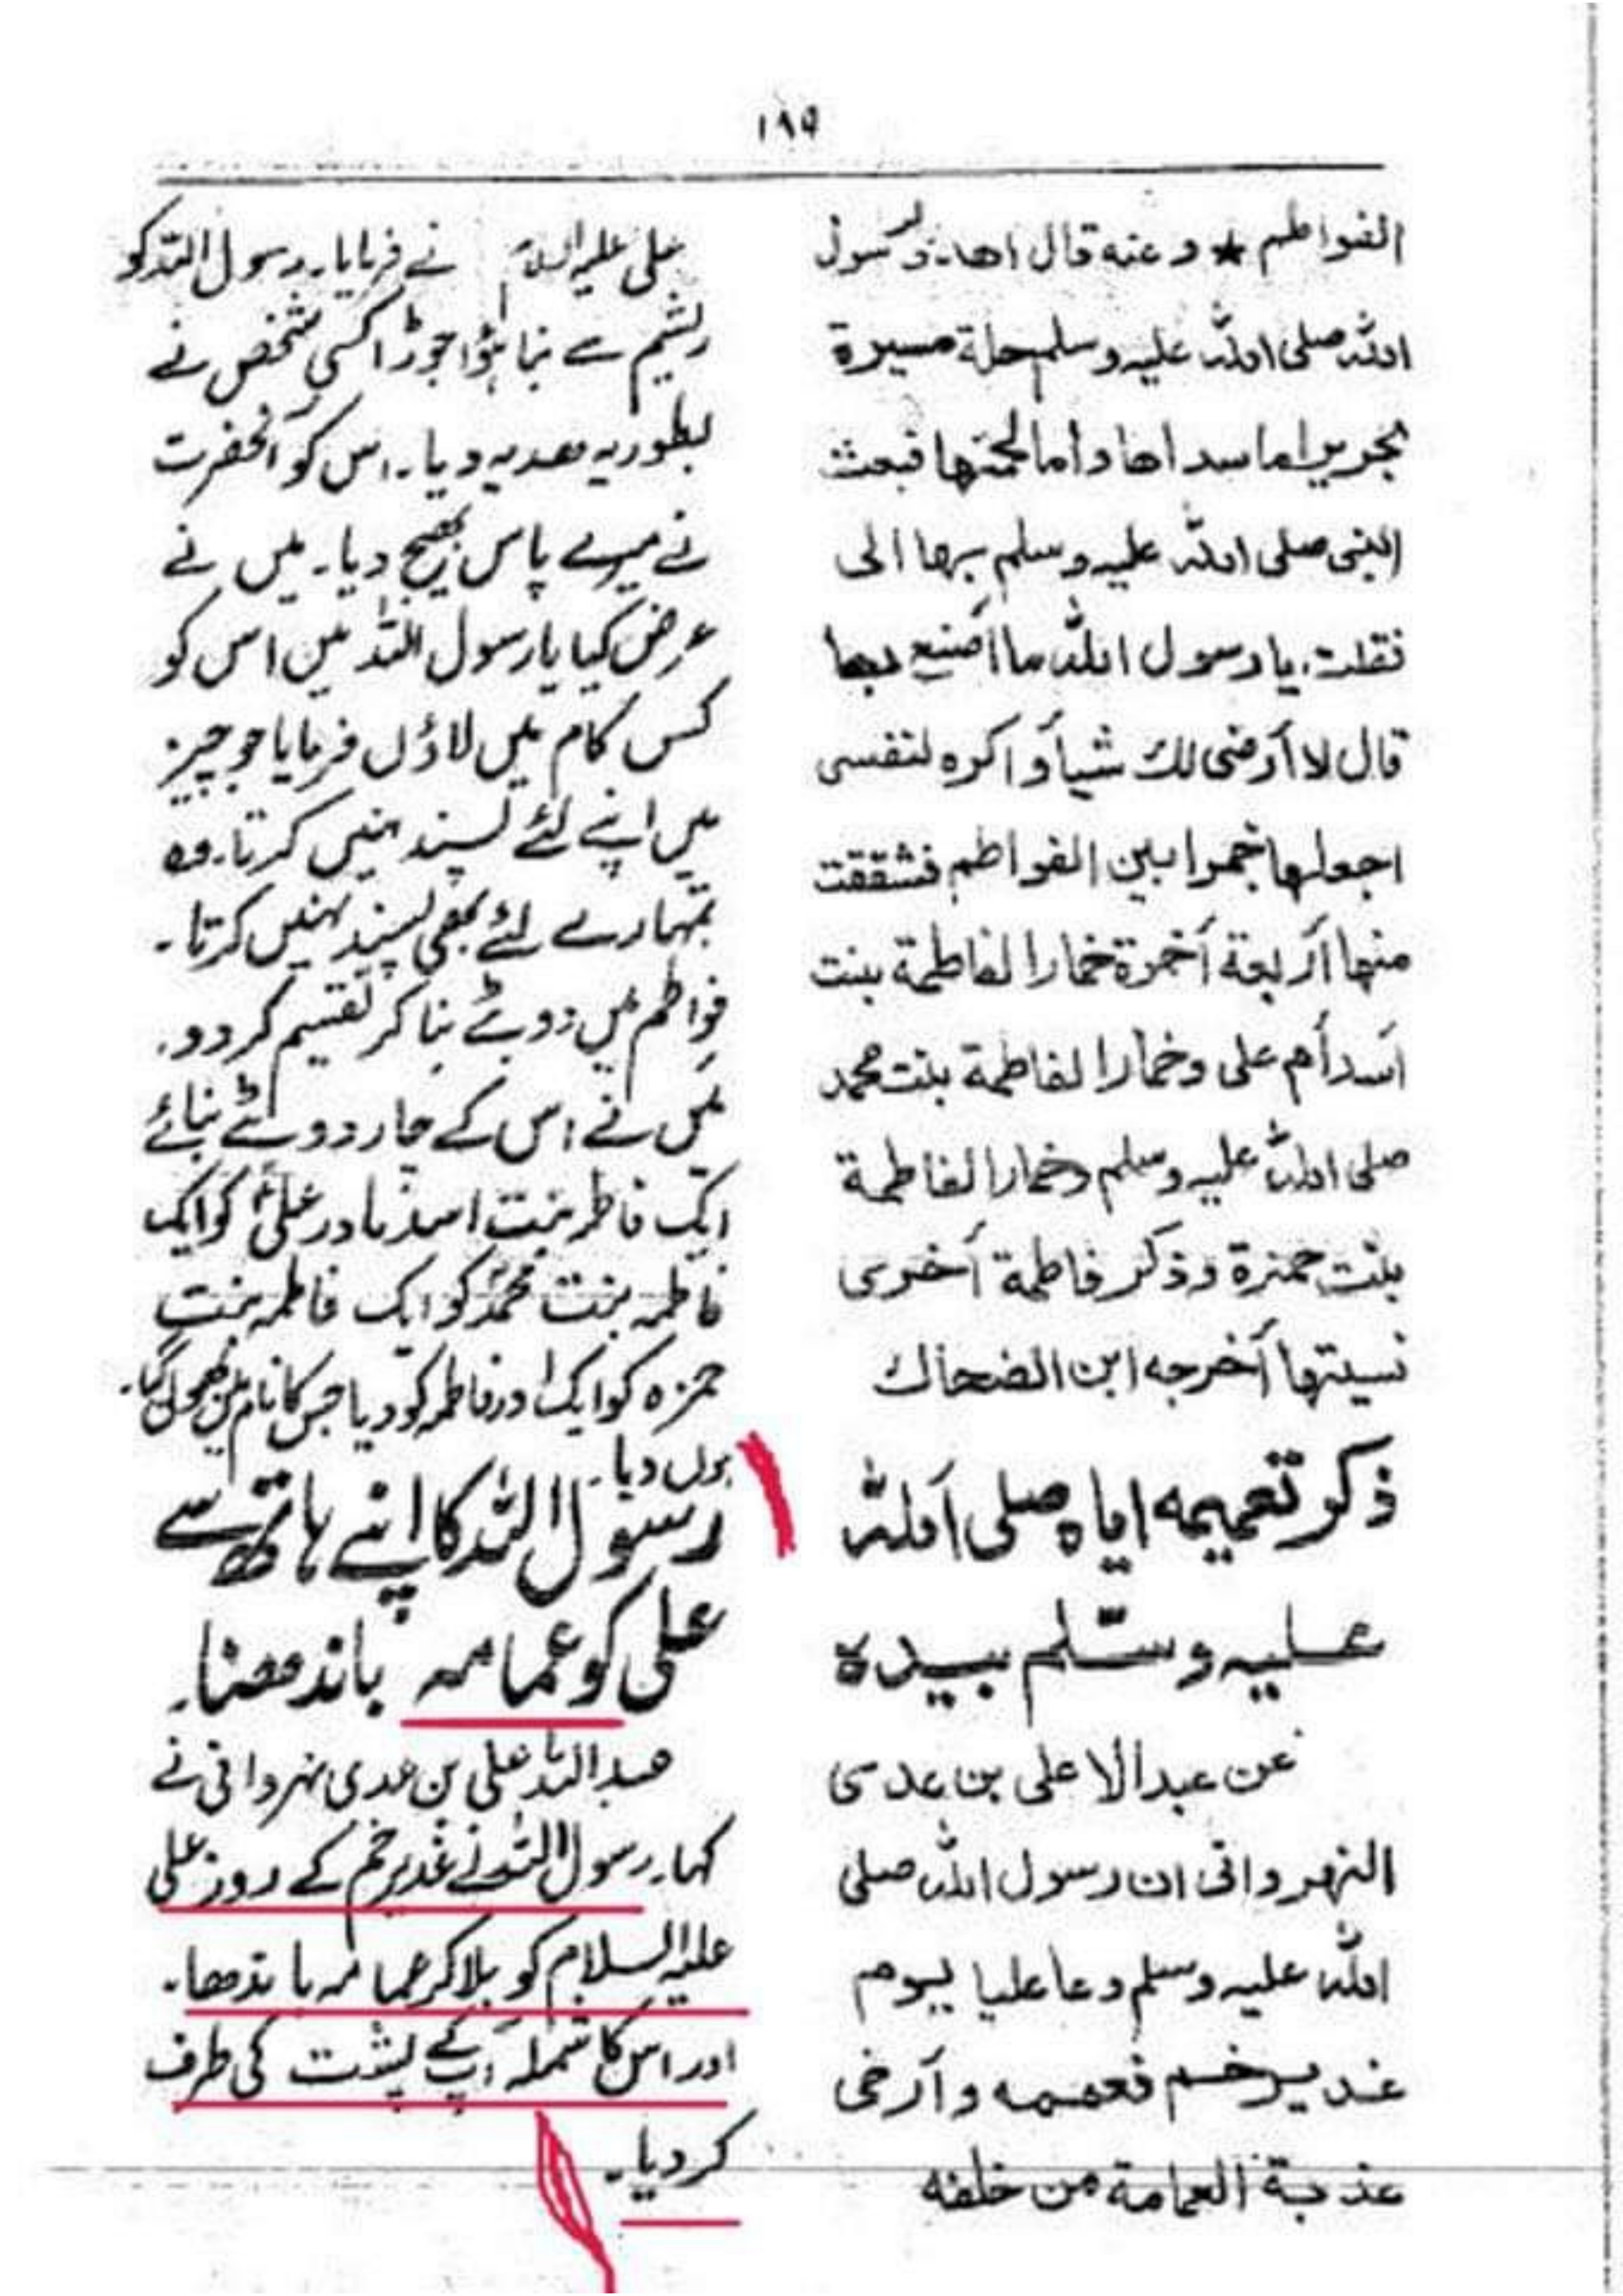 ١٨٩
الفواطم ★ وعنه قال اهدي رسول
الله صلى الله عليه وسلم حلة مسيرة
بحرير اما سداها واما لحمتها فبعث
النبى صلى الله عليه وسلم بها الى
فقلت يا رسول الله ما أصنع بها
قال لا أرضى لك شيأ وأكره لنفسى
اجعلها خمرا بين الفواطم فشققت
منها أربعة أخمرة خمارا لفاطمة بنت
أسد أم على وخمارا لفاطمة بنت محمد
صلى الله عليه وسلم وخمارا لفاطمة
بنت حمزة وذكر فاطمة أخرى
نسيتها أخرجه ابن الضحاك
ذكر تعميمه اياه صلى الله
عليه وسلّم بيده
عن عبد الاعلى بن عدى
النهروانى ان رسول الله صلى
الله عليه وسلم دعا عليا يوم
غدير خم فعممه وأرخى
عذبة العمامة من خلفه
على عليه السلام نے فرمایا۔ رسول اللہ کو
ریشم سے بنا ہؤا جوڑا کسی شخص نے
بطوریہ ھدیہ دیا۔ اس کو آنحضرت
نے میرے پاس بھیج دیا۔ میں نے
عرض کیا یا رسول اللہ میں اس کو
کس کام میں لاؤں فرمایا جو چیز
میں اپنے لئے پسند نہیں کرتا۔ وہ
تمہارے لئے بھی پسند نہیں کرتا۔
فواطم میں دوپٹے بنا کر تقسیم کر دو۔
میں نے اس کے چار دوپٹے بنائے
ایک فاطمہ بنت اسد مادر علیؑ کو ایک
فاطمہ بنت محمدؐ کو ایک فاطمہ بنت
حمزہ کو ایک اور فاطمہ کو دیا جس کا نام میں بھول گیا۔
ہوں دیا۔
رسول اللہ کا اپنے ہاتھ سے
علی کو عمامہ باندھنا۔
عبد اللہ علی بن عدی نہروانی نے
کہا۔ رسول اللہ نے غدیر خم کے روز علی
علیہ السلام کو بلا کر عمامہ باندھا۔
اور اس کا شملہ آپ کے پشت کی طرف
کر دیا۔